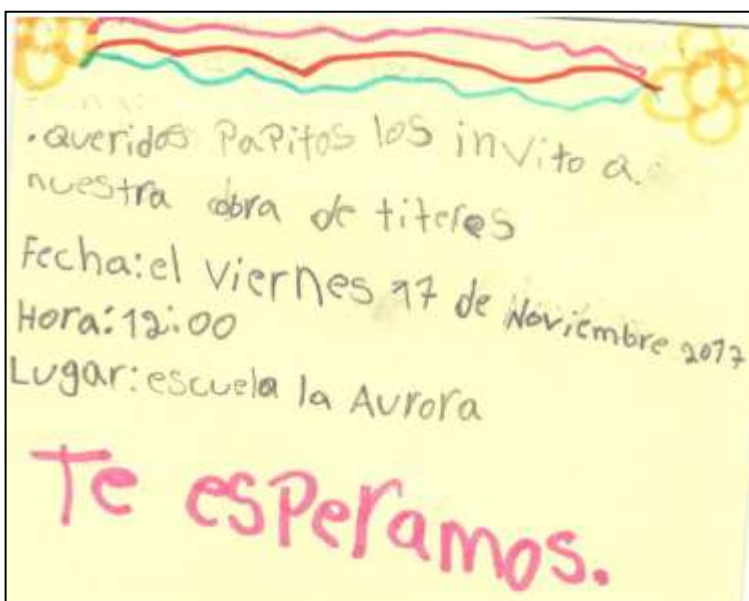 .queridos PaPitos los invito a
nuestra obra de titeres
Fecha:el viernes 17 de Noviembre 2017
Hora:12:00
Lugar:escuela la Aurora
Te esperamos.